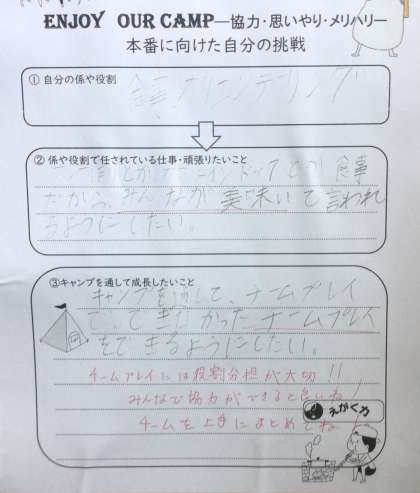 ENJOY OUR CAMP―協力・思いやり・メリハリ―
本番に向けた自分の挑戦
① 自分の係や役割
オリエンテーリング
② 係や役割で任されている仕事・頑張りたいこと
食事
だから、みんなが美味いて言われ
るようにしたい。
③キャンプを通して成長したいこと
キャンプを通して、チームプレイ
できなかったチームプレイ
をできるようにしたい。
チームプレイには役割分担が大切!!
みんなで協力ができると良いね
えがく力
チームを上手にまとめてね